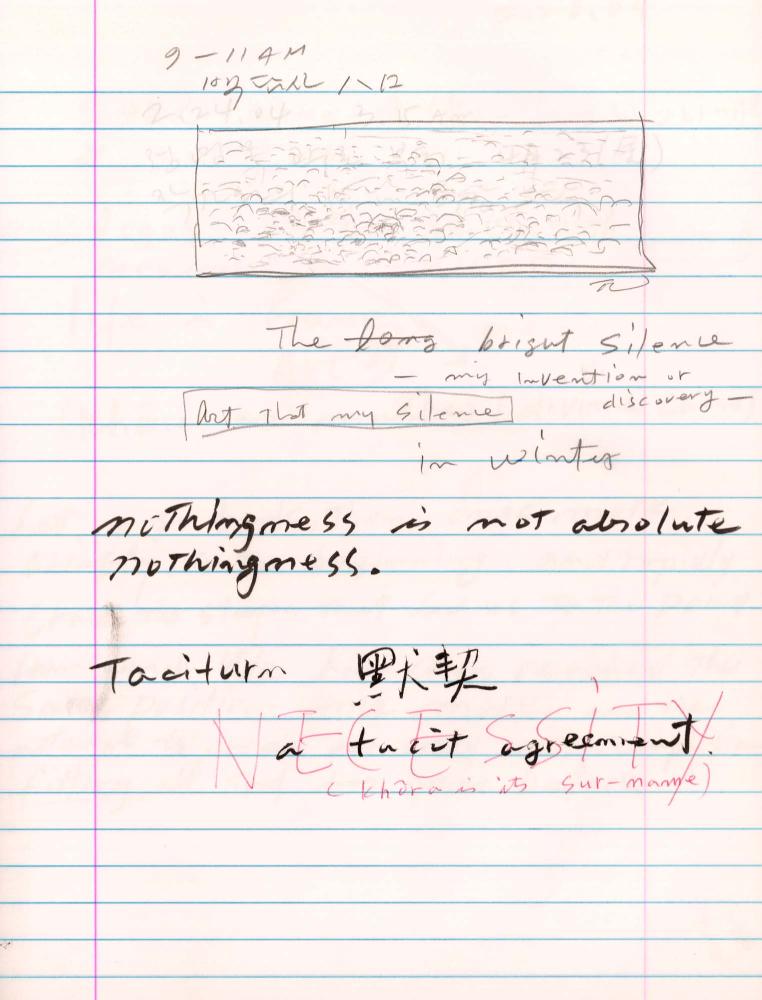 9 – 11 AM
The long bright silence
— my invention or
discovery —
Art that my silence
in winter
nothingness is not absolute
nothingness.
Taciturn 默契
NECESSITY
a tacit agreement.
(Khōra is its sur-name)